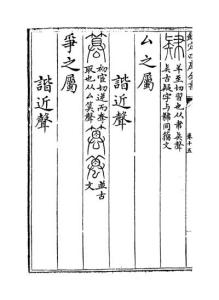 欽定四庫全書
卷十五
羊至切習也从聿矣聲
矣古疑字與肄同籀文
厶之屬
諧近聲
初官切逆而奪
取也从厶算聲
並古
文
爭之屬
諧近聲